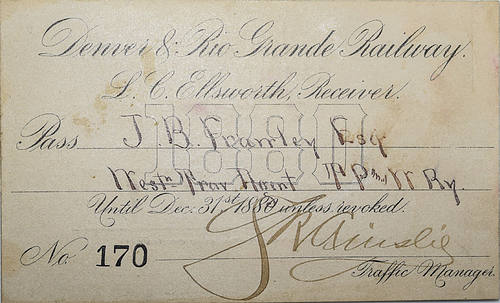 Denver & Rio Grande Railway.
L. C. Ellsworth, Receiver.
1880
Pass J. B. Frawley Esq
Westn Trav Agent
Until Dec. 31st 1880 unless revoked.
No. 170
Traffic Manager.